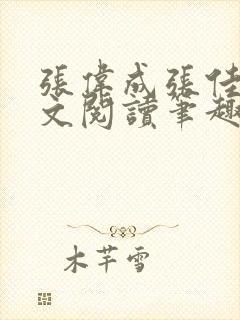 張偉成張佳
文閱讀筆趣
木芊雪